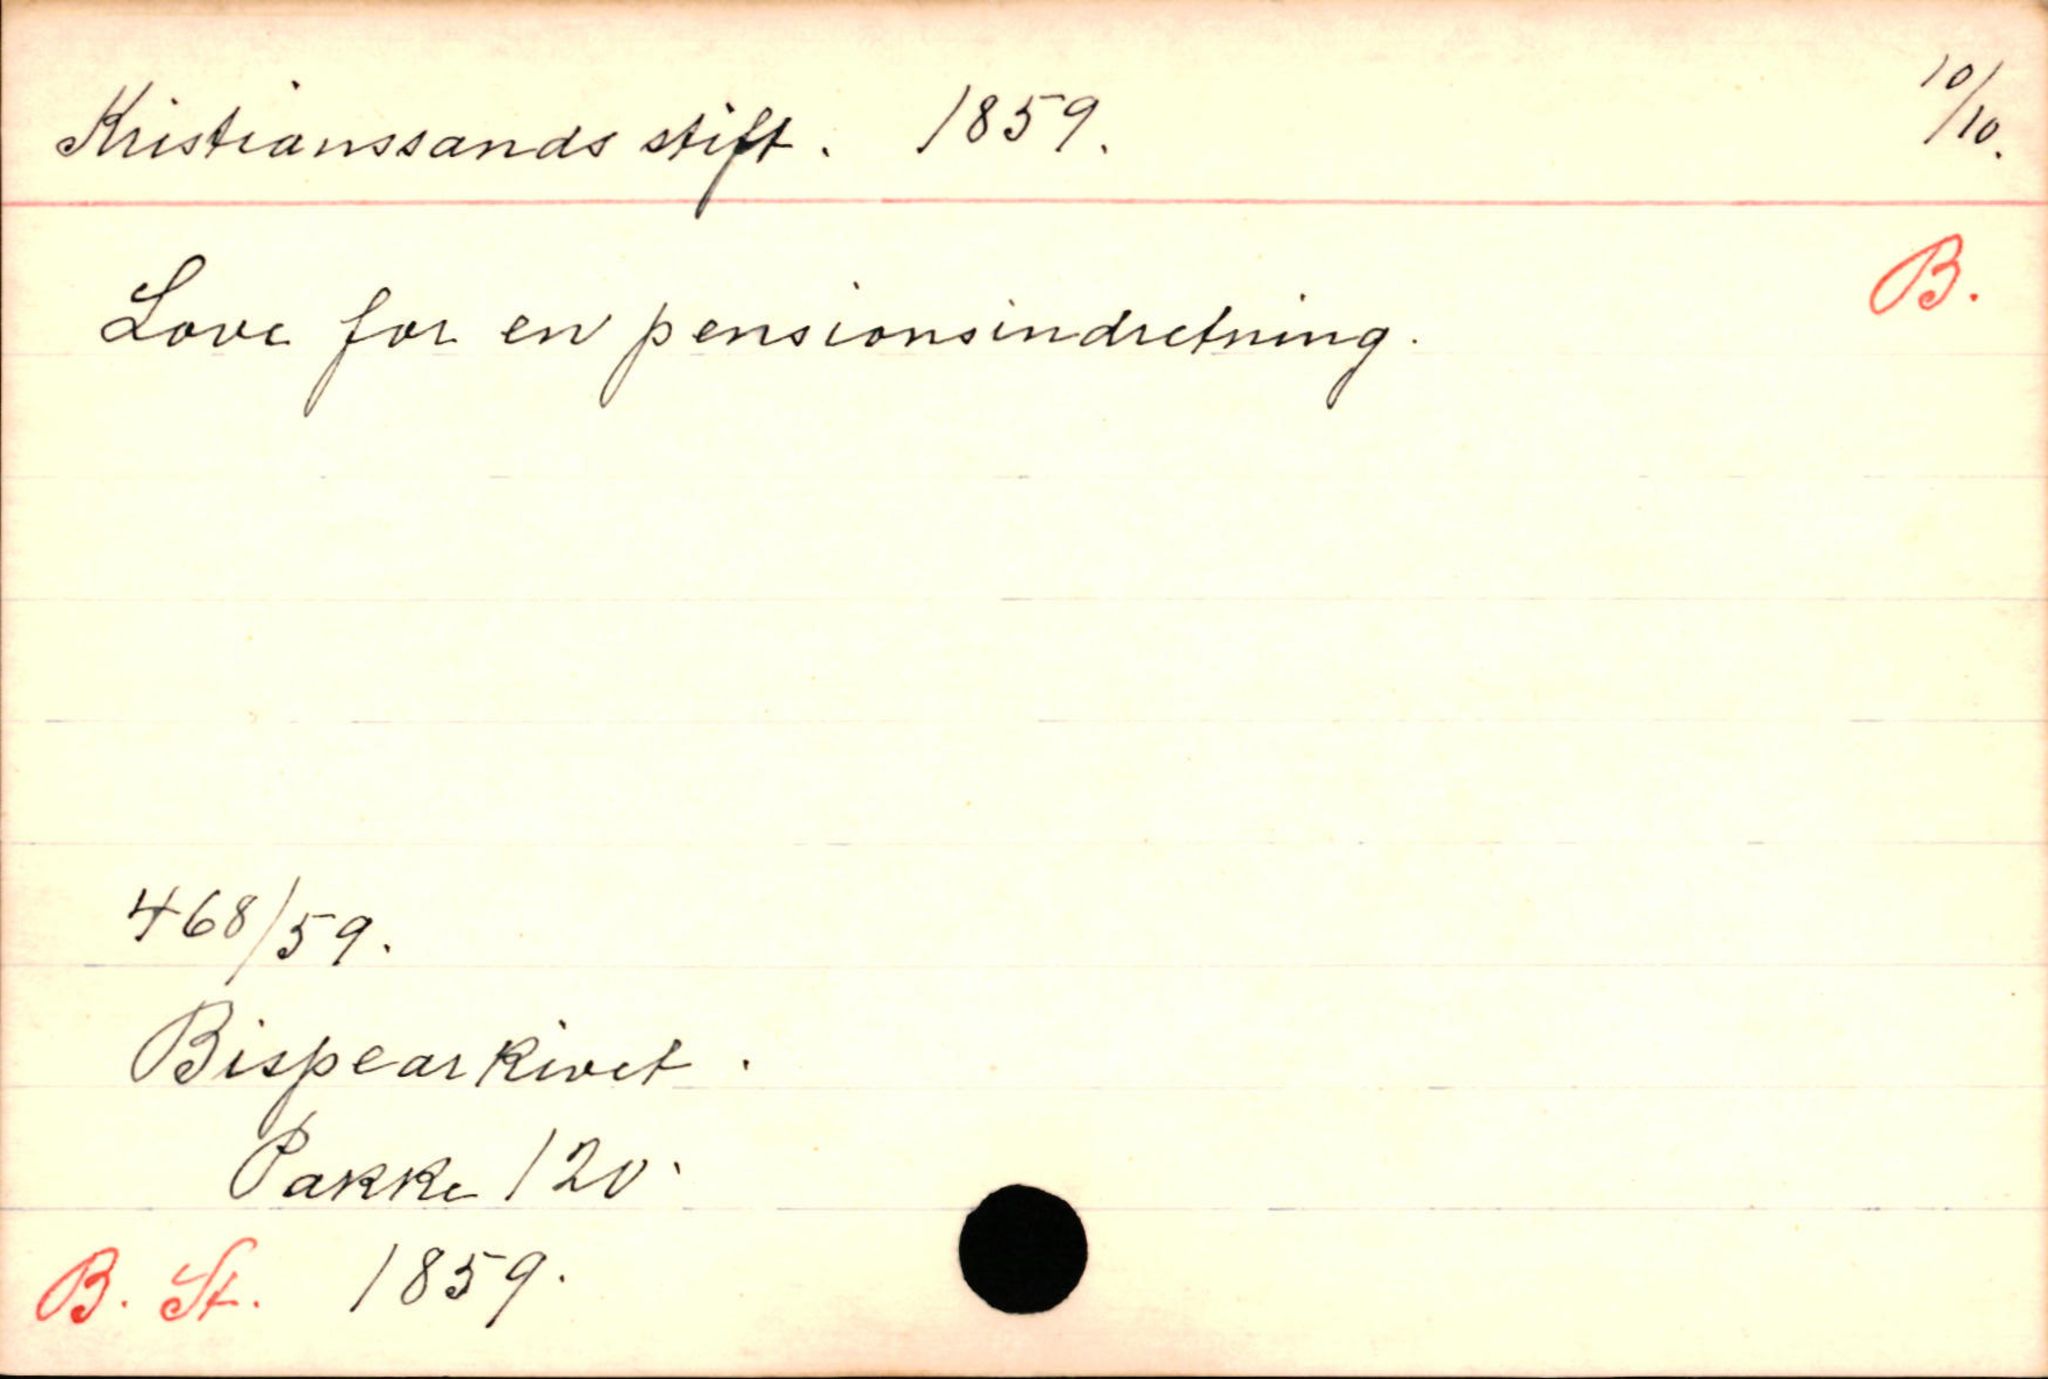 Kristianssands stift. 1859. 10/10.
B.
Love for en pensionsindretning.
468/59.
Bispearkivet.
Pakke 120.
B. St. 1859.